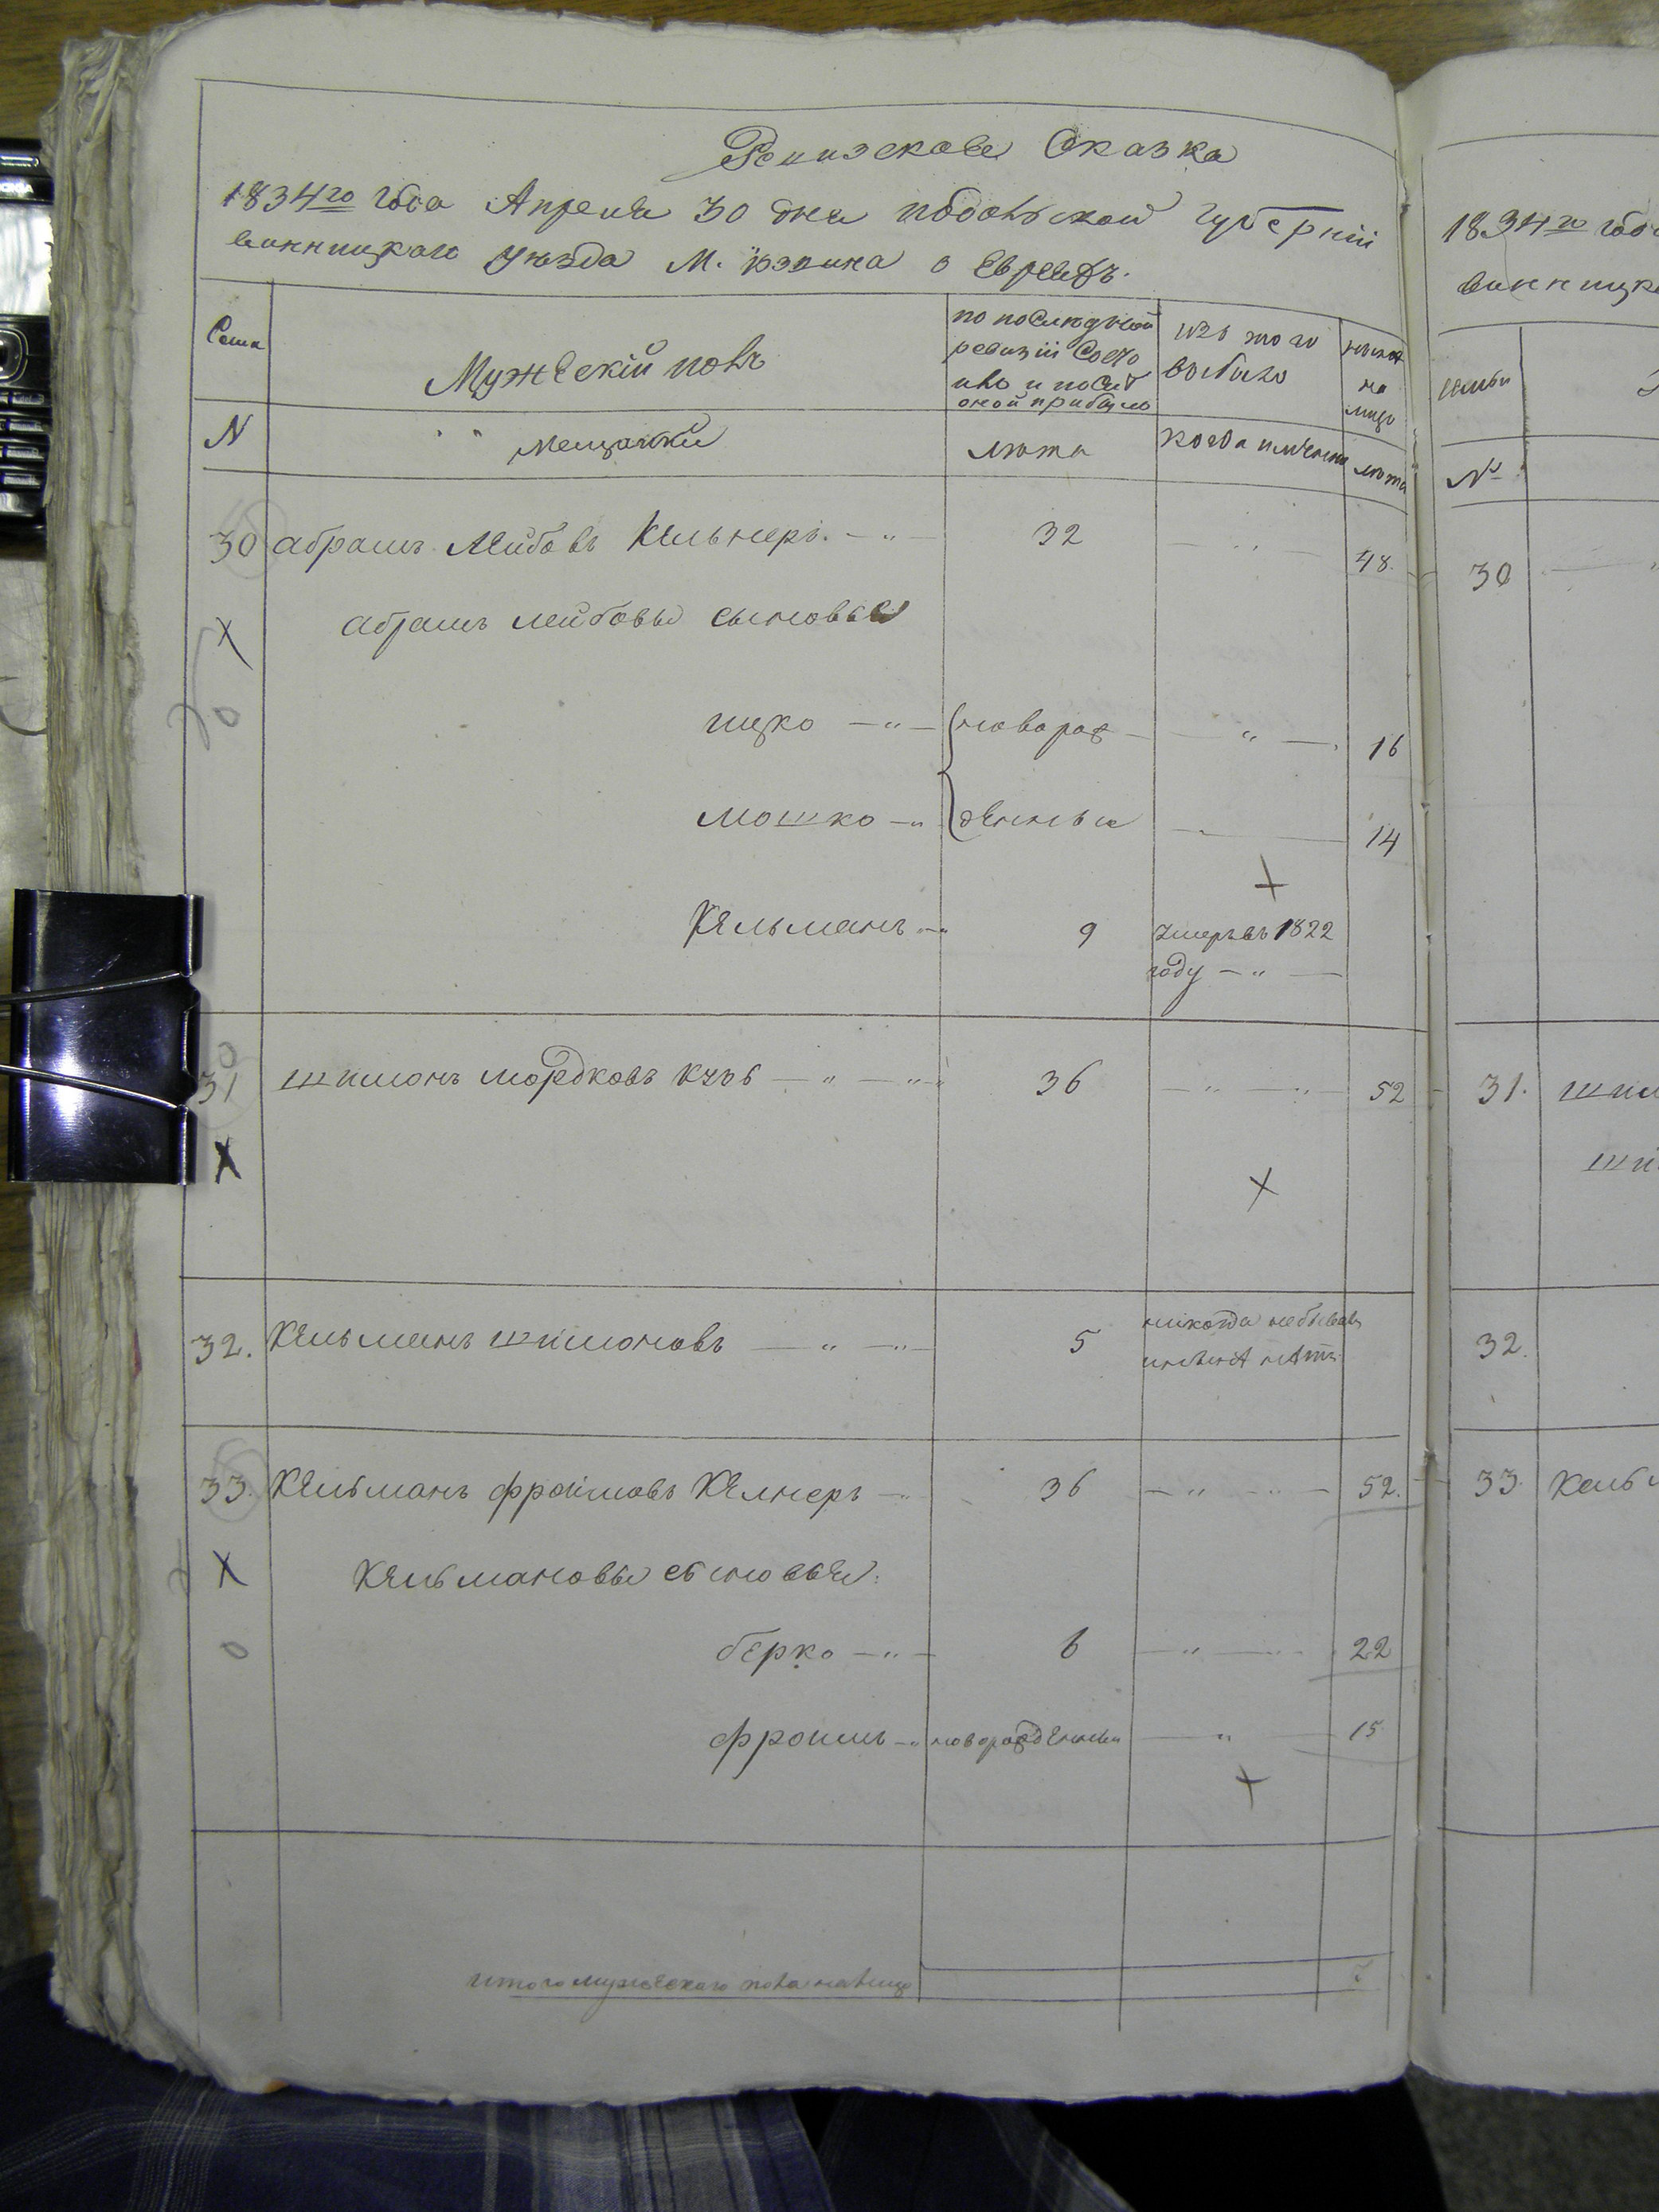 Ревизская Сказка
1834го года Апреля 30 дня подольской губерніи
винницкого уезда М. о Евреяхъ.
Семьи
N
Мужескій полъ
мещанъи
по последней
ревизіи состо
яло и после
оной прибыло
лета
изъ того
выбыло
когда именно
ныне
на
лицо
лета
30 абрамъ Лейбовъ Кельнеръ 32 48
абрамъ лейбовы сыновья
ицко новорож 16
мошко денные 14
Кельманъ 9 умеръ въ 1822
году
31 шимонъ мордковъ 36 52
32. Кельманъ шимоновъ 5 никогда небывалъ
и нетъ
33. Кельманъ фроимовъ Келнеръ 36 52
Кельмановы сыновья:
берко 6 22
фроимъ новорожденный 15
итого мужескаго пола налицо 7
1834го годо
винницко
семьи
№
30
31. шим
ши
32.
33. Кель